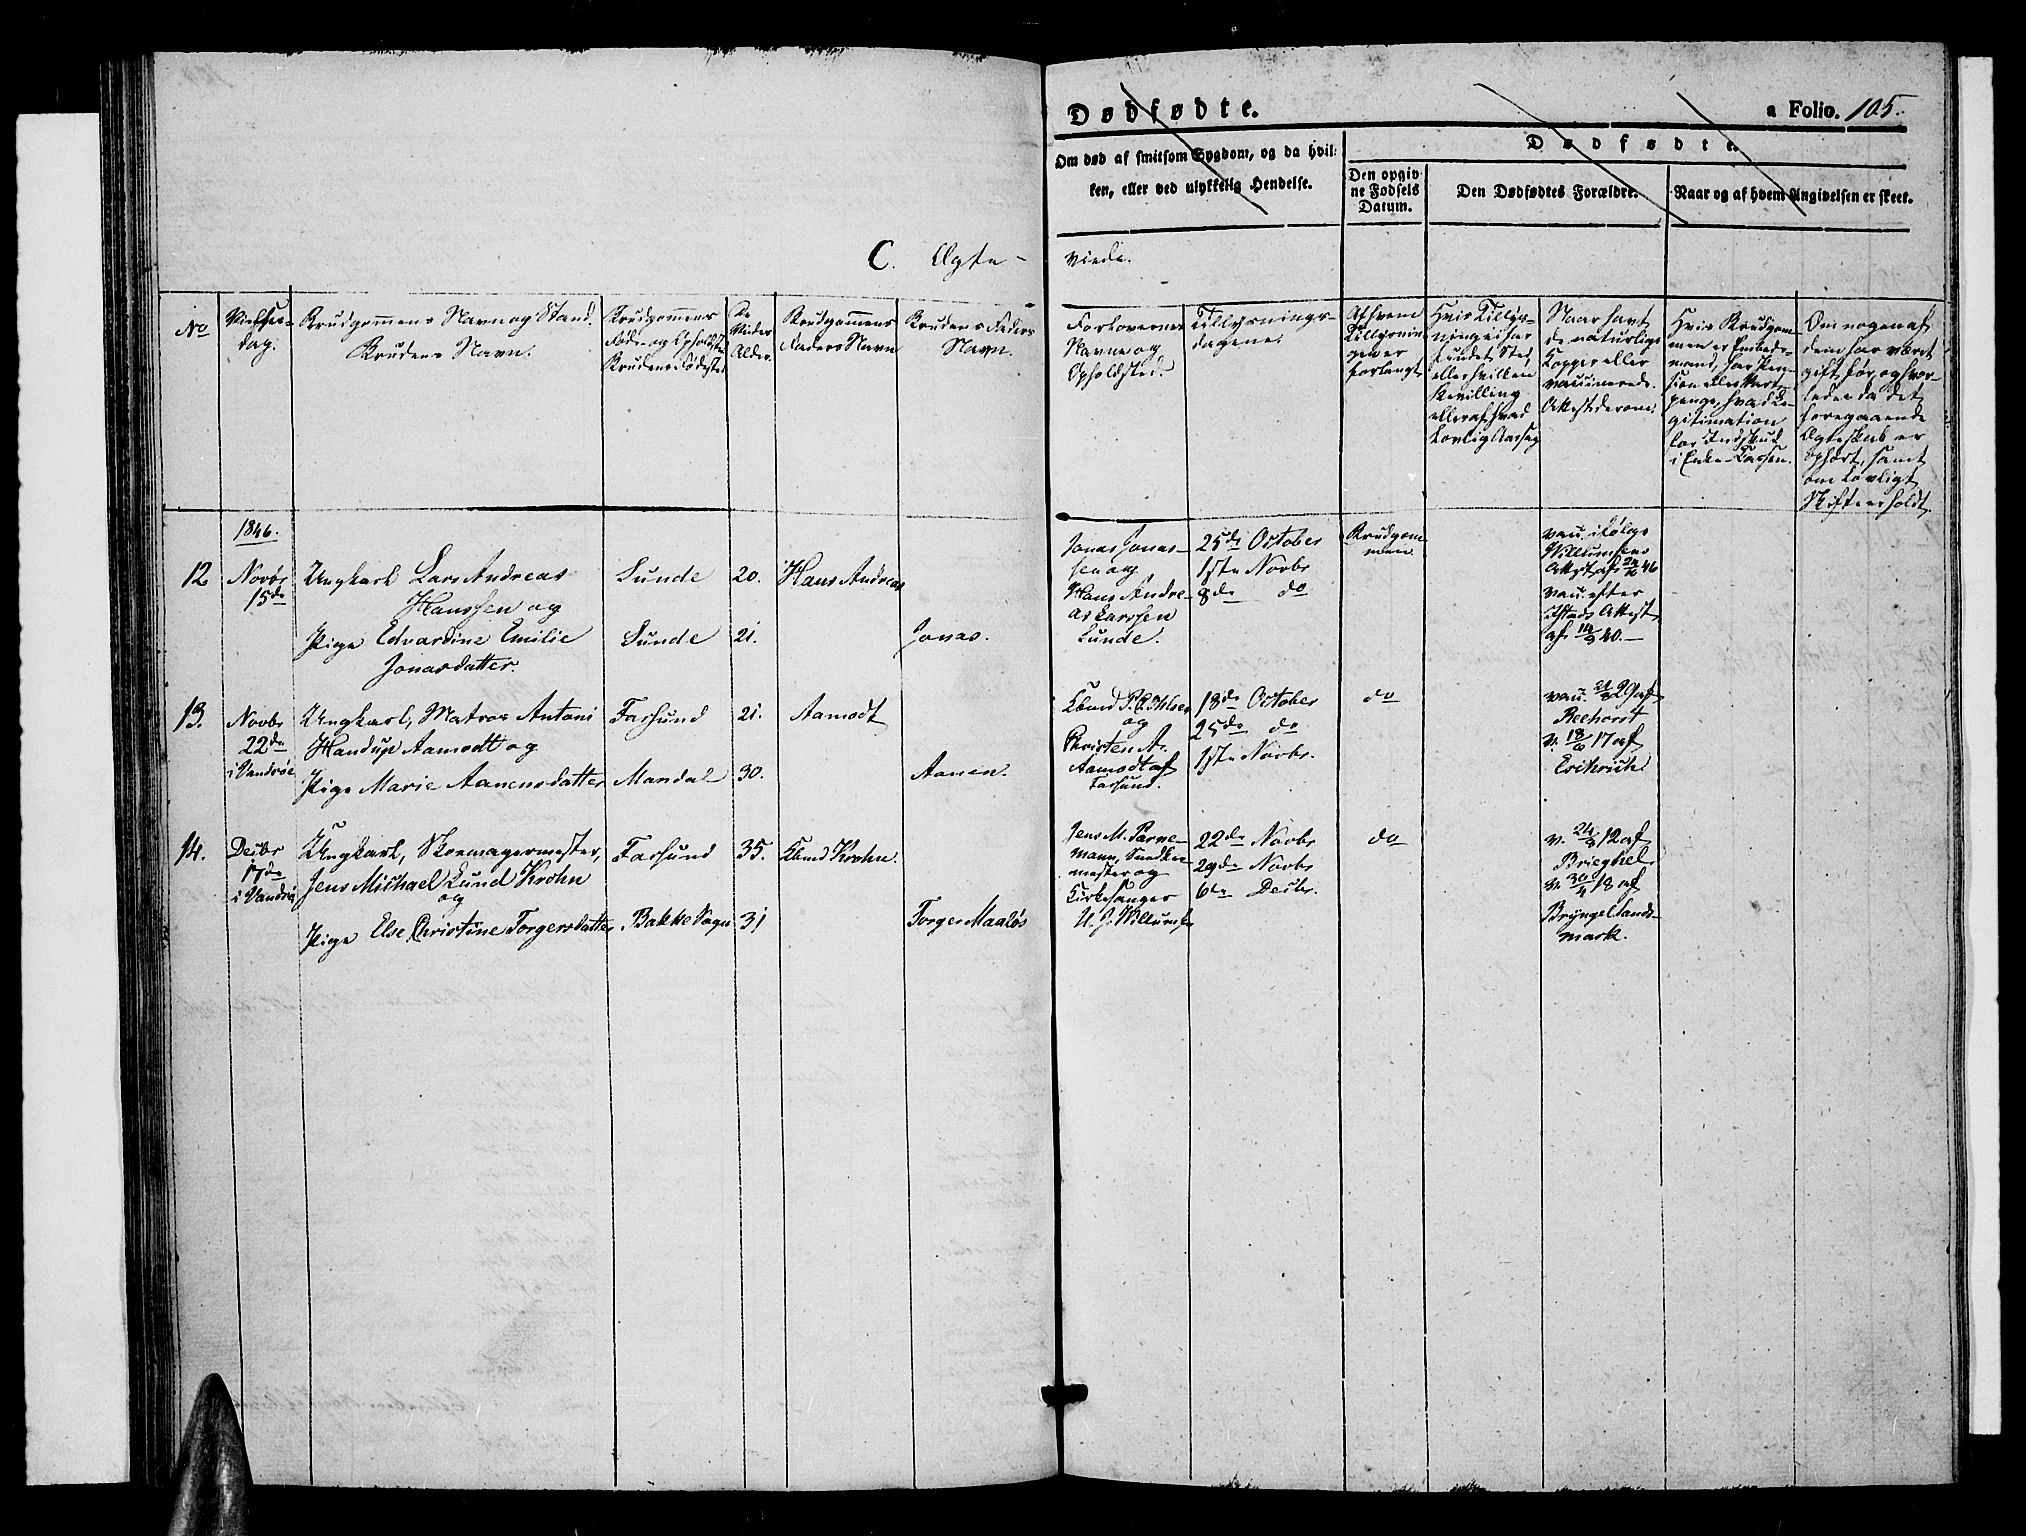 Dødfødte. a Folio. 105.
Om død af smitsom Sygdom, og da hvil-
ken, eller ved ulykkelig Hendelse.
Dødfødte.
Den opgiv
ne Fødsels
Datum.
Den Dødfødtes Forældre.
Naar og af hvem Angivelsen er skeet.
C. Ægte-
viede.
No
Vielses-
dag.
Brudgommens Navn og Stand.
Brudens Navn.
Brudgommens
Føde- og Opholdst.
Brudens Fødested
De
Vieder
Alder.
Brudgommens
Faders Navn
Brudens Faders
Navn.
Forlovernes
Navne og
Opholdsted.
Tillysnings-
dagene.
Af hvem
Tillysnin-
gen er
forlangt.
Hvis Tillys-
ning ei har
fundet Sted,
eller hvilken
Bevilling
eller af hvad
Lovlig Aarsag
Naar havt
de naturlige
Kopper eller
vaccinerede.
Attest derom.
Hvis Brudgom-
men er Embeds-
mand, har Pen-
sion eller Vart-
penge, hvad Le-
gitimation
for Indskud
i Enke-Cassen.
Om nogen af
dem har været
gift før og hvor-
ledes da det
foregaaende
Ægteskab er
ophørt, samt
om lovligt
Skifte er holdt.
1846.
12
Novbr
15de
Ungkarl Lars Andreas
Hanssen og
Pige Edvardine Emilie
Jonasdatter.
Lunde
Lunde
20.
21.
Hans Andreas
Jonas.
Jonas Jonas-
sen og
Hans Andre-
as Larssen
Lunde.
25de October
1ste Novbr
8de do
Brudgom-
men.
vacc. ifølge
Willumsens
Attest af 24/10 46
vacc. efter
Attest
af 14/9 40.—
13.
Novbr
22de
i Vandsøe
Ungkarl, Matros Antoni
Handup Aamodt og
Pige Marie Aanensdatter
Farsund
Mandal
21.
30.
Aamodt
Aanen.
og
Christen A.
Aamodt af
Farsund.
18de October
25de do
1ste Novbr.
do
vacc. 29 af
Reehorst
v. 18/6 17 af
14.
Decbr
17de
i Vandsøe
Ungkarl, Skomagermester,
Jens Michael Lund Krohn
og
Pige Else Christine Torgersdatter
Farsund
Bakke Sogn
35.
31
Kbmd Krohn.
Torger Maaløs
Jens M. Parne-
mann, Snedker-
mester og
Kirkesanger
U. J. Willumsen
22de Novbr
29de Novbr
6te Decbr.
do
v. 24/8 12 af
Brieghel.
v. 30/4 18 af
Bryngel Sands-
mark.